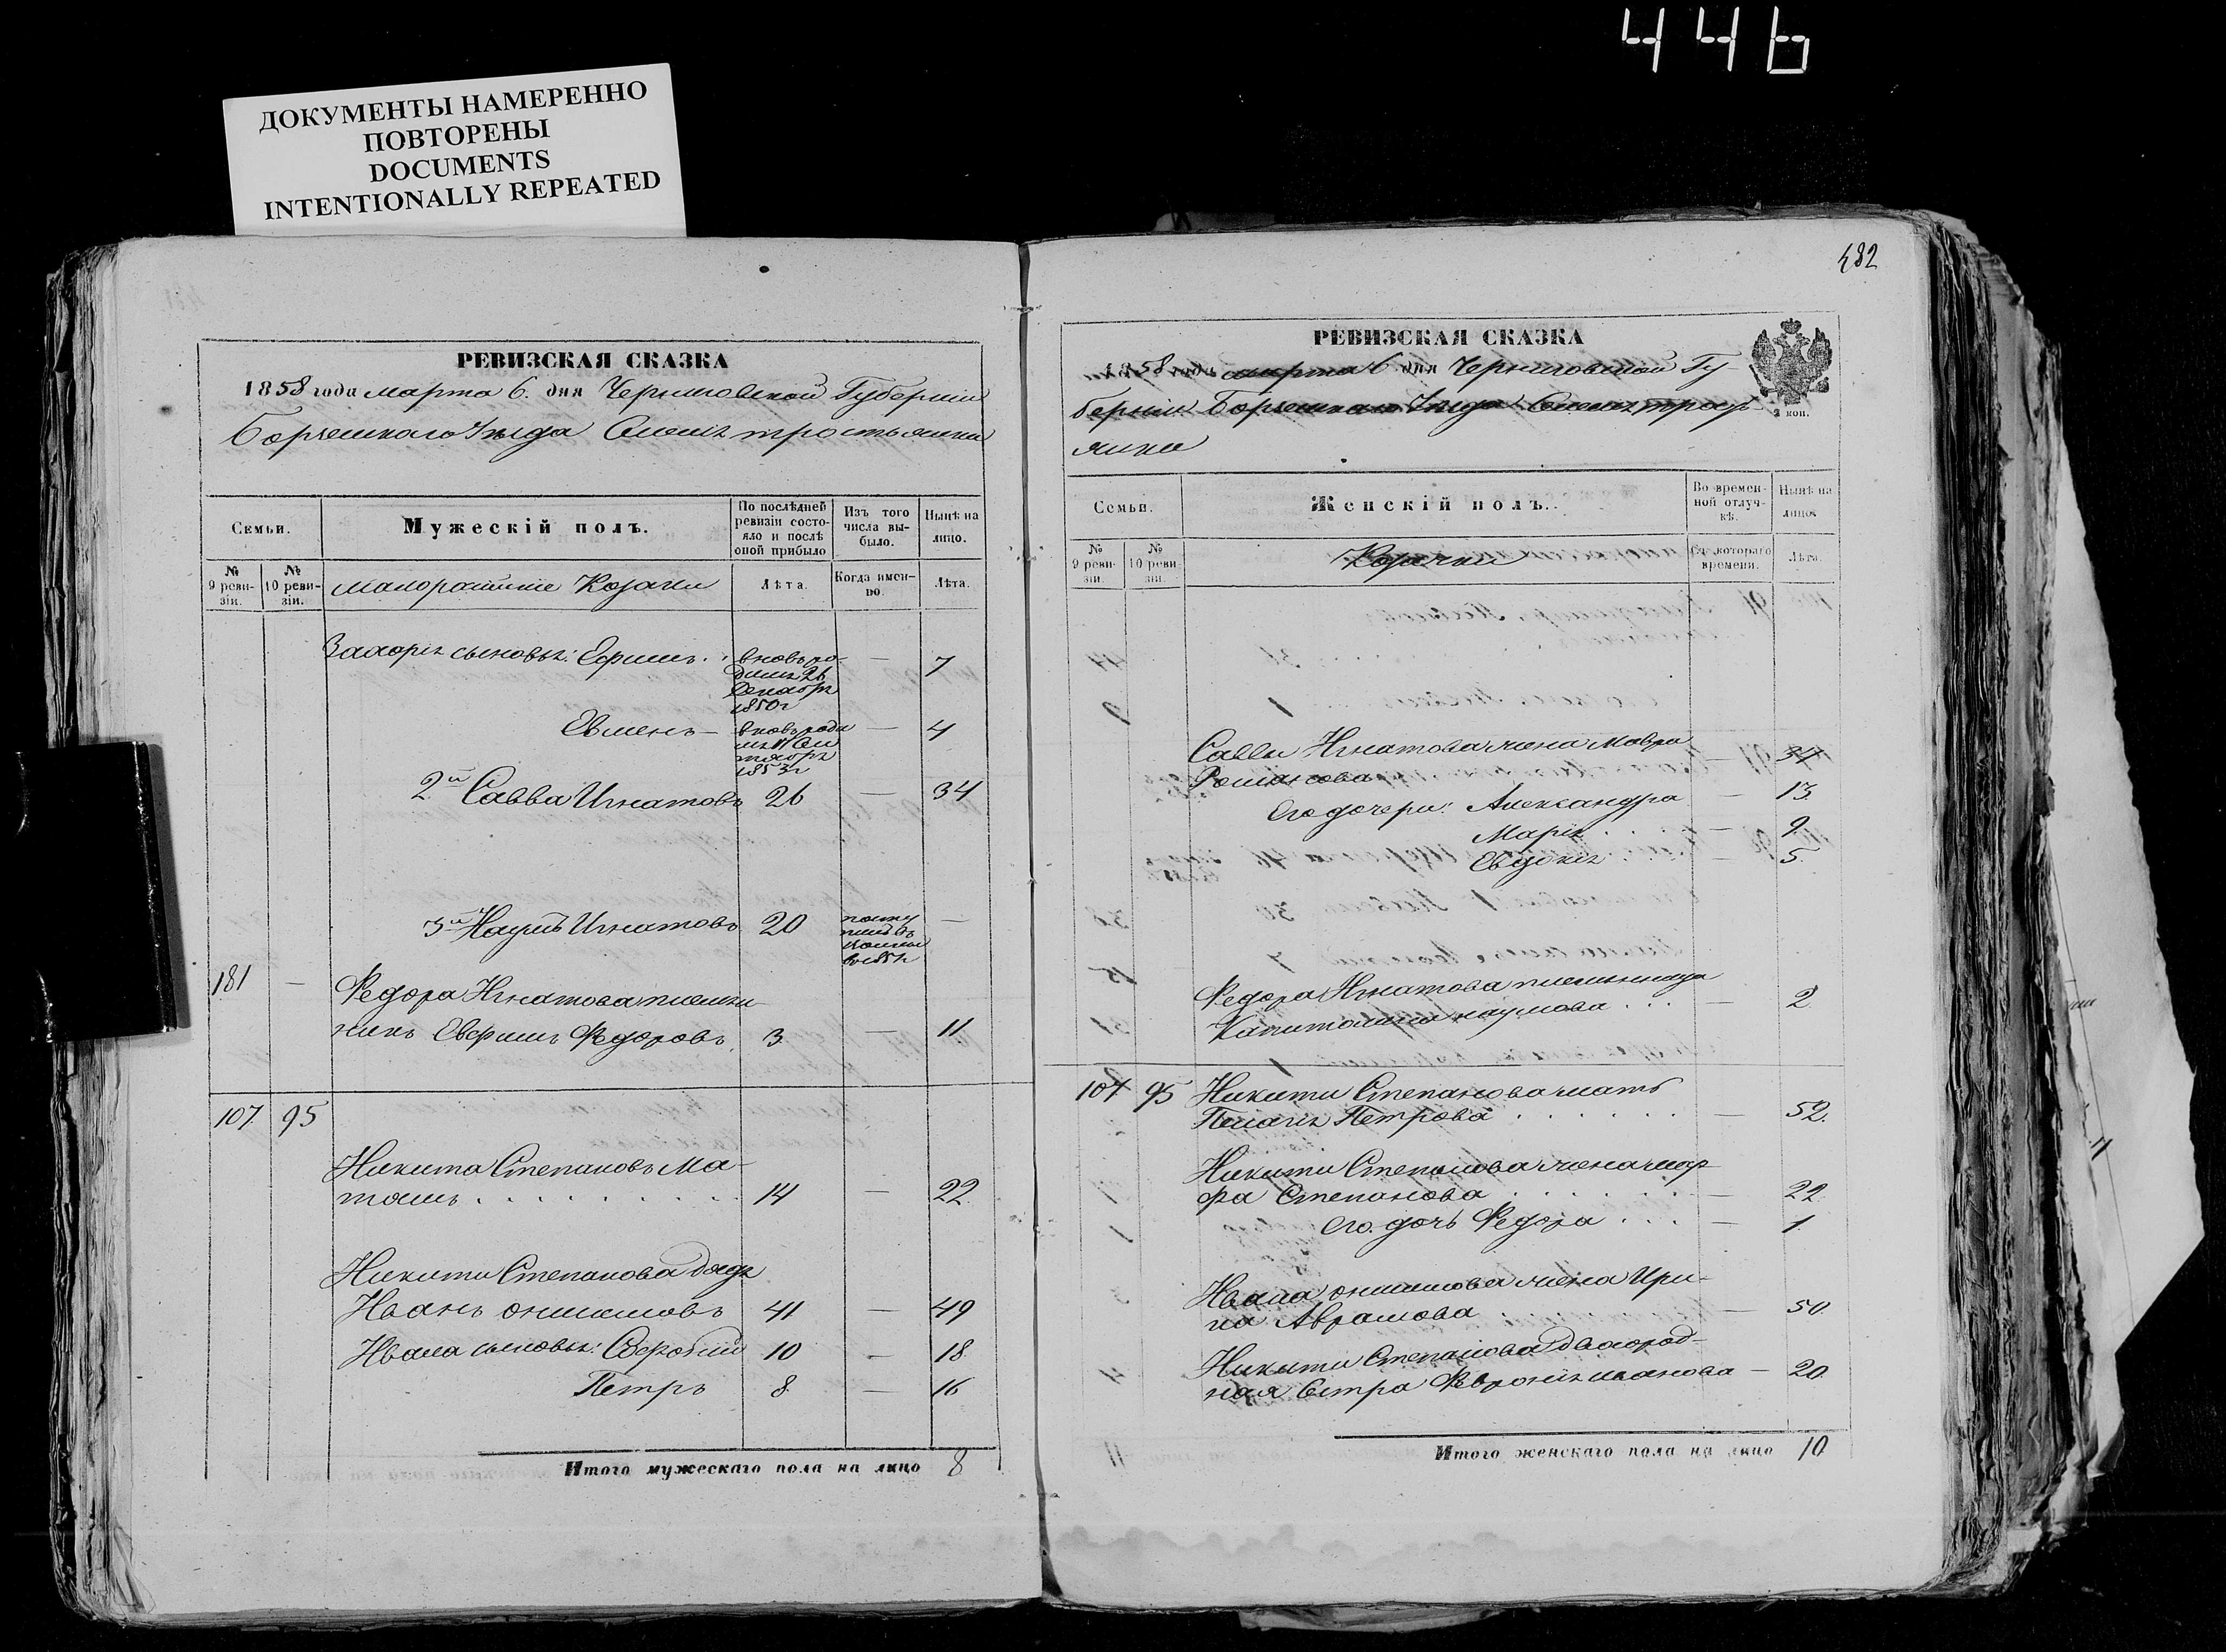 446
ДОКУМЕНТЫ НАМЕРЕННО
ПОВТОРЕНЫ
DOCUMENTS
INTENTIONALLY REPEATED
РЕВИЗСКАЯ СКАЗКА
1858 года марта 6. дня Черниговской Губернии
Борзенского Уезда Селенія тростянки
Семьи.
Мужескій полъ.
По послѣдней ревизіи состояло и послѣ оной прибыло
Изъ того числа выбыло.
Нынѣ на лицо.
№ 9 ревизіи.
№ 10 ревизіи.
малороссійскіе Козаки
Лѣта.
Когда именно.
Лѣта.
Захарія сыновья: Ефимъ . . вновь ро- — 7
дился 26
Декабря
1850г
Евменъ — вновь роди — 4
лся
1853г
2й Савва Игнатовъ 26 — 34
3й Наумъ Игнатовъ 20 —
181 — Федора Игнатова племян-
никъ Евфимъ Федоровъ 3. — 11.
107. 95
Никита Степановъ Ма-
. . . . . . . . . 14 — 22.
Никиты Степанова дядя
Иванъ онисимовъ 41 — 49
Ивана сыновья: 10 — 18
Петръ 8. — 16
Итого мужескаго пола на лицо 8
482
РЕВИЗСКАЯ СКАЗКА
1858 года марта 6 дня Черниговской Гу-
берніи Борзенского Уезда Селенія трост
янки
2 коп.
Семьи.
Женскій полъ.
Во временной отлучкѣ.
Нынѣ на лицо.
№ 9 ревизіи.
№ 10 ревизіи.
Козачки
Съ котораго времени.
Лѣта.
Саввы Игнатова жена Мавра
Романова — 34
Его дочери: Александра — 13.
Марія . . — 9.
Евдокія . . 5.
Федора Игнатова племянница
Капитолина наумова . . . — 2
107 95 Никиты Степанова мать
Пелагія Петрова . . . . . . — 52.
Никиты Степанова жена мар-
фа Степанова . . . . . . — 22
Его дочь Федора . . . — 1.
Ивана онисимова жена Ири-
на Аврамова — 50.
Никиты Степанова двоюрод-
ная Сестра Февронія иванова — 20.
Итого женскаго пола на лицо 10